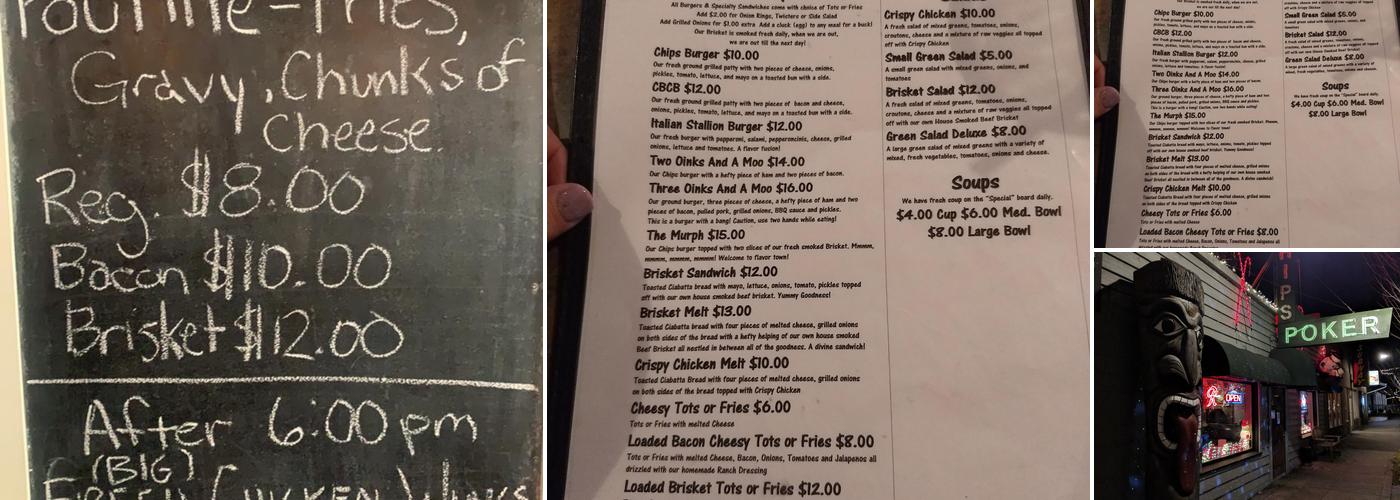 Poutine - Fries,
Gravy, Chunks of
Cheese.
Reg. $8.00
Bacon $10.00
Brisket $12.00
After 6:00 pm
(BIG)
All Burgers & Specialty Sandwiches come with choice of Tots or Fries
Add $2.00 for Onion Rings, Twisters or Side Salad
Add Grilled Onions for $1.00 extra Add a cluck (egg) to any meal for a buck!
Our Brisket is smoked fresh daily, when we are out,
we are out till the next day!
Chips Burger $10.00
Our fresh ground grilled patty with two pieces of cheese, onions,
pickles, tomato, lettuce, and mayo on a toasted bun with a side.
CBCB $12.00
Our fresh ground grilled patty with two pieces of bacon and cheese,
onions, pickles, tomato, lettuce, and mayo on a toasted bun with a side.
Italian Stallion Burger $12.00
Our fresh burger with pepperoni, salami, pepperoncinis, cheese, grilled
onions, lettuce and tomatoes. A flavor fusion!
Two Oinks And A Moo $14.00
Our Chips burger with a hefty piece of ham and two pieces of bacon.
Three Oinks And A Moo $16.00
Our ground burger, three pieces of cheese, a hefty piece of ham and two
pieces of bacon, pulled pork, grilled onions, BBQ sauce and pickles.
This is a burger with a bang! Caution, use two hands while eating!
The Murph $15.00
Our Chips burger topped with two slices of our fresh smoked Brisket. Mmmm,
mmmm, mmmm, mmmm! Welcome to flavor town!
Brisket Sandwich $12.00
Toasted Ciabatta bread with mayo, lettuce, onions, tomato, pickles topped
off with our own house smoked beef brisket. Yummy Goodness!
Brisket Melt $13.00
Toasted Ciabatta bread with four pieces of melted cheese, grilled onions
on both sides of the bread with a hefty helping of our own house smoked
Beef Brisket all nestled in between all of the goodness. A divine sandwich!
Crispy Chicken Melt $10.00
Toasted Ciabatta Bread with four pieces of melted cheese, grilled onions
on both sides of the bread topped with Crispy Chicken
Cheesy Tots or Fries $6.00
Tots or Fries with melted Cheese
Loaded Bacon Cheesy Tots or Fries $8.00
Tots or Fries with melted Cheese, Bacon, Onions, Tomatoes and Jalapenos all
drizzled with our homemade Ranch Dressing
Loaded Brisket Tots or Fries $12.00
Crispy Chicken $10.00
A fresh salad of mixed greens, tomatoes, onions,
croutons, cheese and a mixture of raw veggies all topped
off with Crispy Chicken
Small Green Salad $5.00
A small green salad with mixed greens, onions, and
tomatoes
Brisket Salad $12.00
A fresh salad of mixed greens, tomatoes, onions,
croutons, cheese and a mixture of raw veggies all topped
off with our own House Smoked Beef Brisket
Green Salad Deluxe $8.00
A large green salad of mixed greens with a variety of
mixed, fresh vegetables, tomatoes, onions and cheese.
Soups
We have fresh soup on the "Special" board daily.
$4.00 Cup $6.00 Med. Bowl
$8.00 Large Bowl
Chips Burger $10.00
CBCB $12.00
Italian Stallion Burger $12.00
Two Oinks And A Moo $14.00
Three Oinks And A Moo $16.00
The Murph $15.00
Brisket Sandwich $12.00
Brisket Melt $13.00
Crispy Chicken Melt $10.00
Cheesy Tots or Fries $6.00
Tots or Fries with melted Cheese
Loaded Bacon Cheesy Tots or Fries $8.00
Small Green Salad $5.00
Brisket Salad $12.00
Green Salad Deluxe $8.00
Soups
We have fresh soup on the "Special" board daily.
$4.00 Cup $6.00 Med. Bowl
$8.00 Large Bowl
HIPS
POKER
OPEN